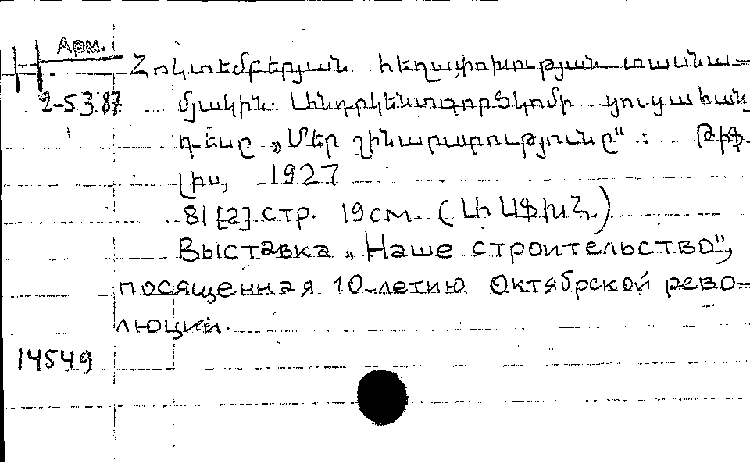 Арм.
Հոկտեմբերյան հեղափոխության տասնա-
2-5.3.87 մյակին Անդրկենտգործկոմի ցուցահան
դեսը „Մեր շինարարությունը“: Թիֆ-
լիս, 1927
81 [2] стр. 19 см. (ԼԻ ԱՖԽՀ)
Выставка „Наше строительство“,
посященная 10-летию Октябрской рево-
люции.
14549